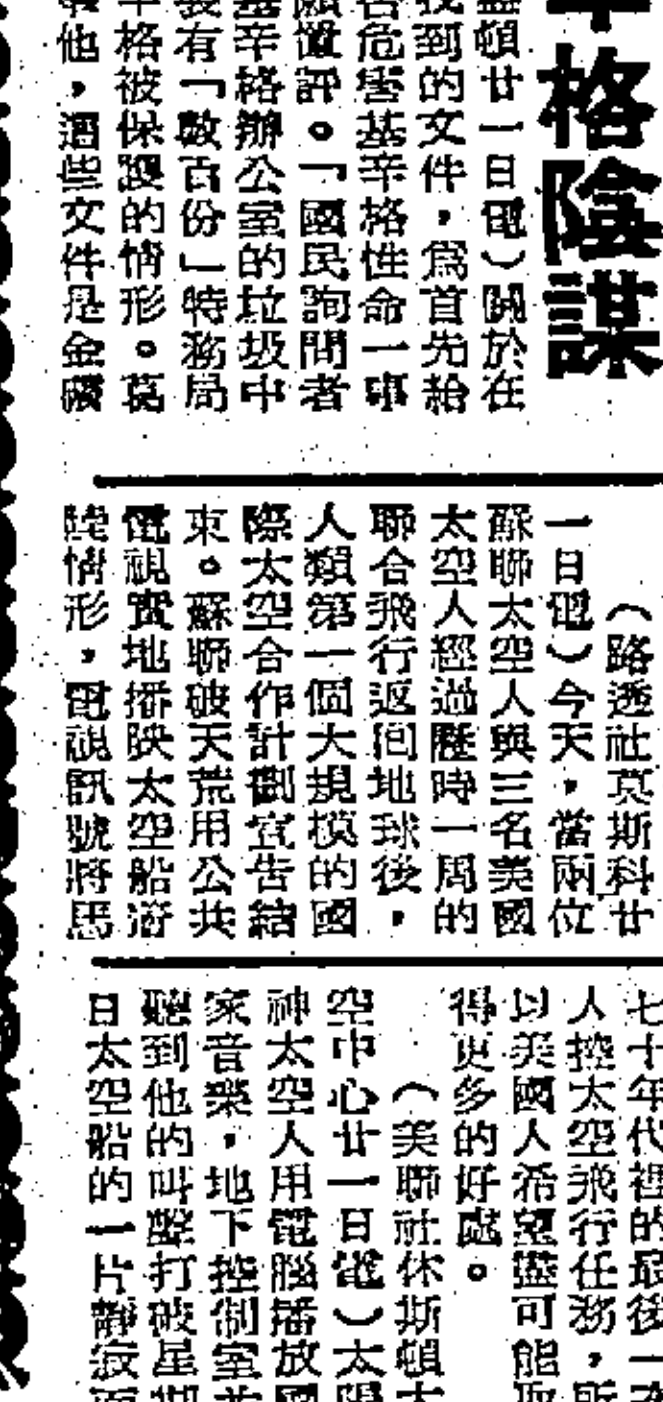 辛格陰謀
盛頓廿一日電）關於在
找到的文件，爲首先給
告危害基辛格性命一事
願置評。「國民詢問者
基辛格辦公室的垃圾中
裝有「數百份」特務局
辛格被保護的情形。葛
他，這些文件是金礦
（路透社莫斯科廿
一日電）今天，當兩位
蘇聯太空人與三名美國
太空人經過歷時一周的
聯合飛行返回地球後，
人類第一個大規模的國
際太空合作計劃宣告結
束。蘇聯破天荒用公共
電視實地播映太空船游
陸情形，電視訊號將馬
七十年代裡的最後一次
人控太空飛行任務，所
以美國人希望盡可能取
得更多的好處。
（美聯社休斯頓太
空中心廿一日電）太陽
神太空人用電腦播放國
家音樂，地下控制室並
聽到他的叫聲打破星期
日太空船的一片靜寂而